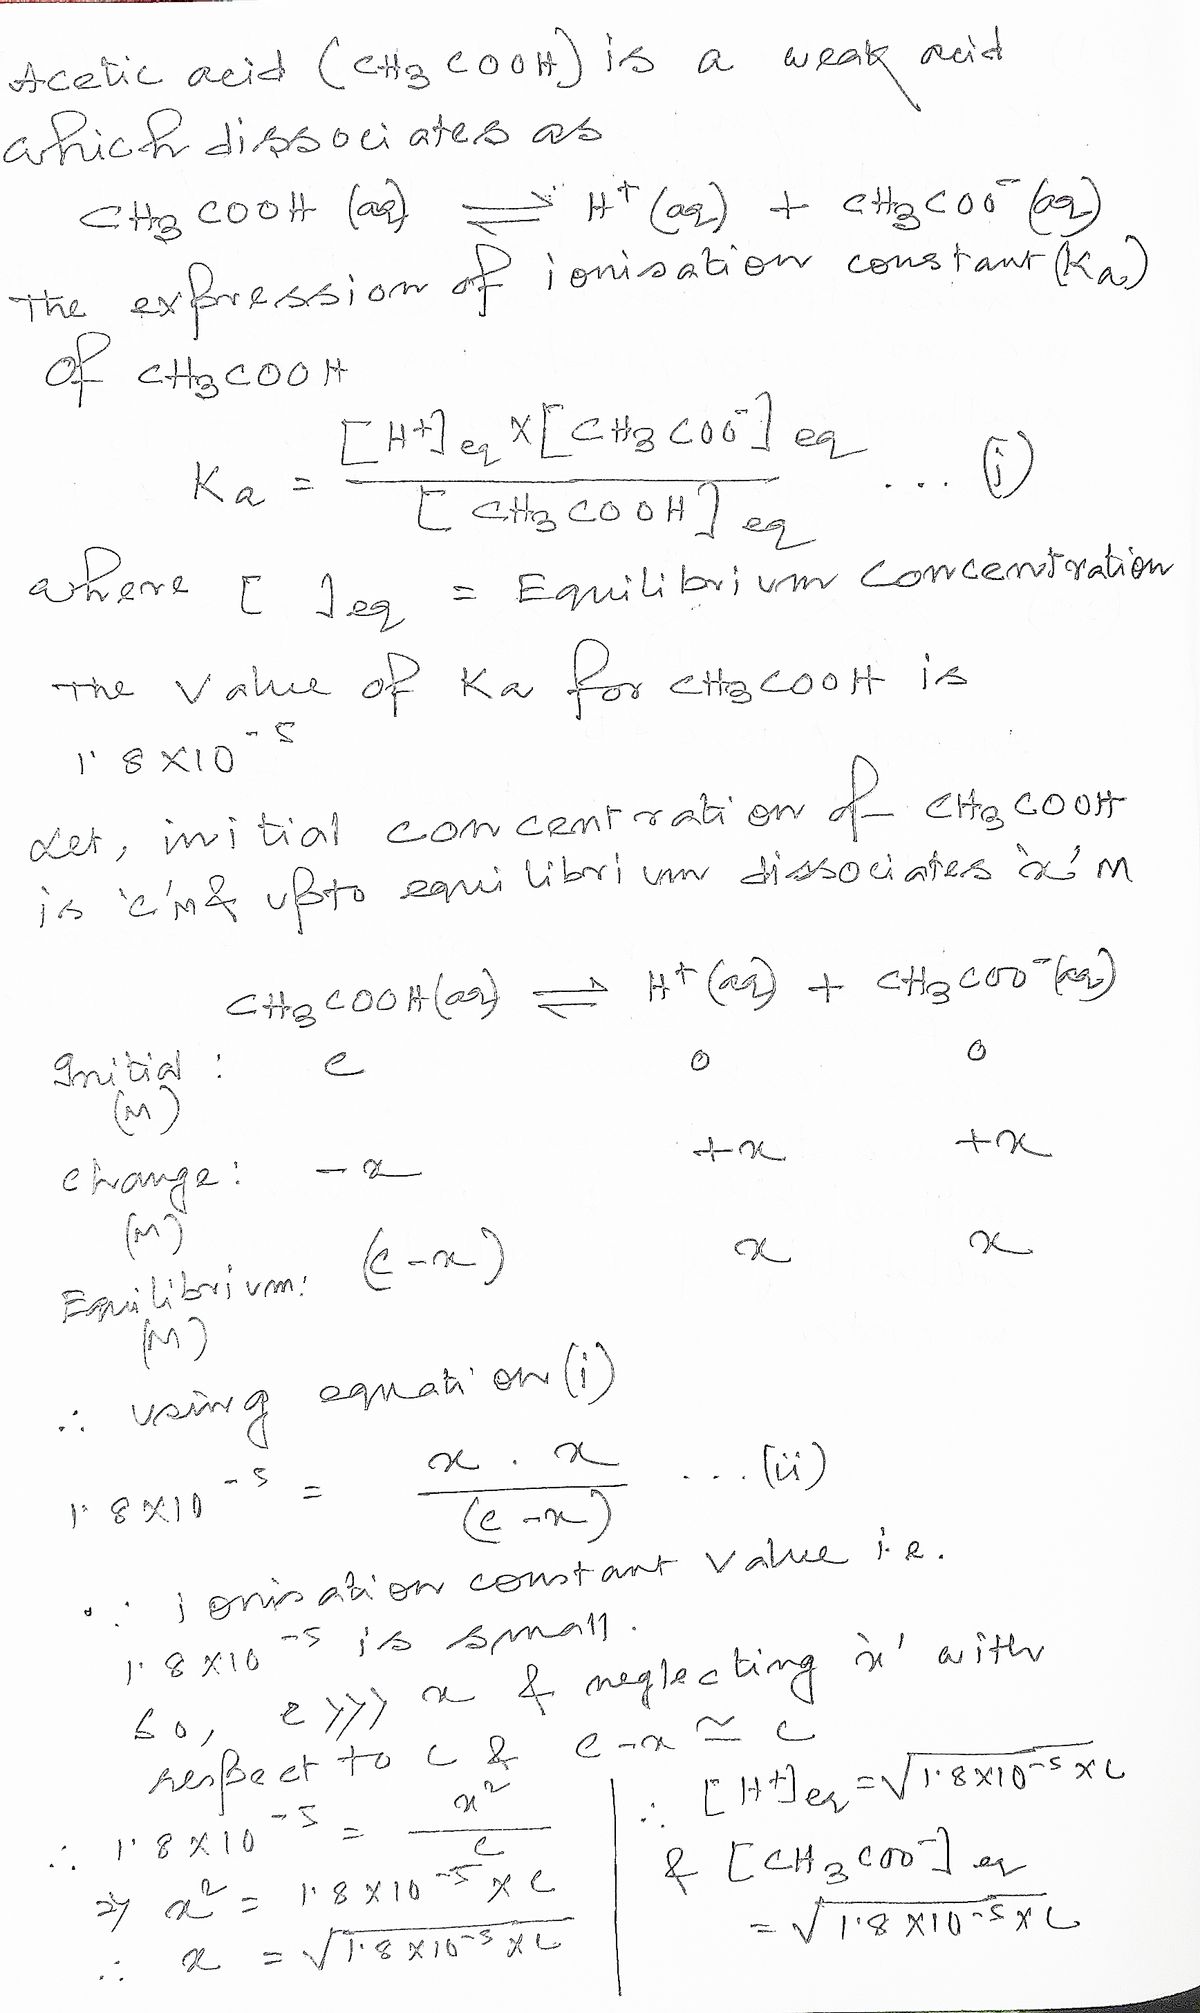 Acetic acid (CH3COOH) is a weak acid
which dissociates as
CH3COOH (aq) ⇌ H⁺ (aq) + CH3COO⁻ (aq)
The expression of ionisation constant (Ka)
of CH3COOH
Ka = [H⁺]eq × [CH3COO⁻]eq / [CH3COOH]eq ... (i)
where [ ]eq = Equilibrium concentration
The value of Ka for CH3COOH is
1·8×10⁻⁵
Let, initial concentration of CH3COOH
is 'c' M & upto equilibrium dissociates 'x' M
CH3COOH (aq) ⇌ H⁺ (aq) + CH3COO⁻ (aq)
Initial : c 0 0
(M)
change : -x +x +x
(M)
Equilibrium: (c-x) x x
(M)
∴ using equation (i)
1·8×10⁻⁵ = x . x / (c-x) ... (ii)
∵ ionisation constant value i.e.
1·8×10⁻⁵ is small.
so, c >>> x & neglecting 'x' with
respect to c & c-x ≃ c
∴ 1·8×10⁻⁵ = x² / c
⇒ x² = 1·8×10⁻⁵ × c
∴ x = √1·8×10⁻⁵ × c
∴ [H⁺]eq = √1·8×10⁻⁵ × c
& [CH3COO⁻]eq
= √1·8×10⁻⁵ × c